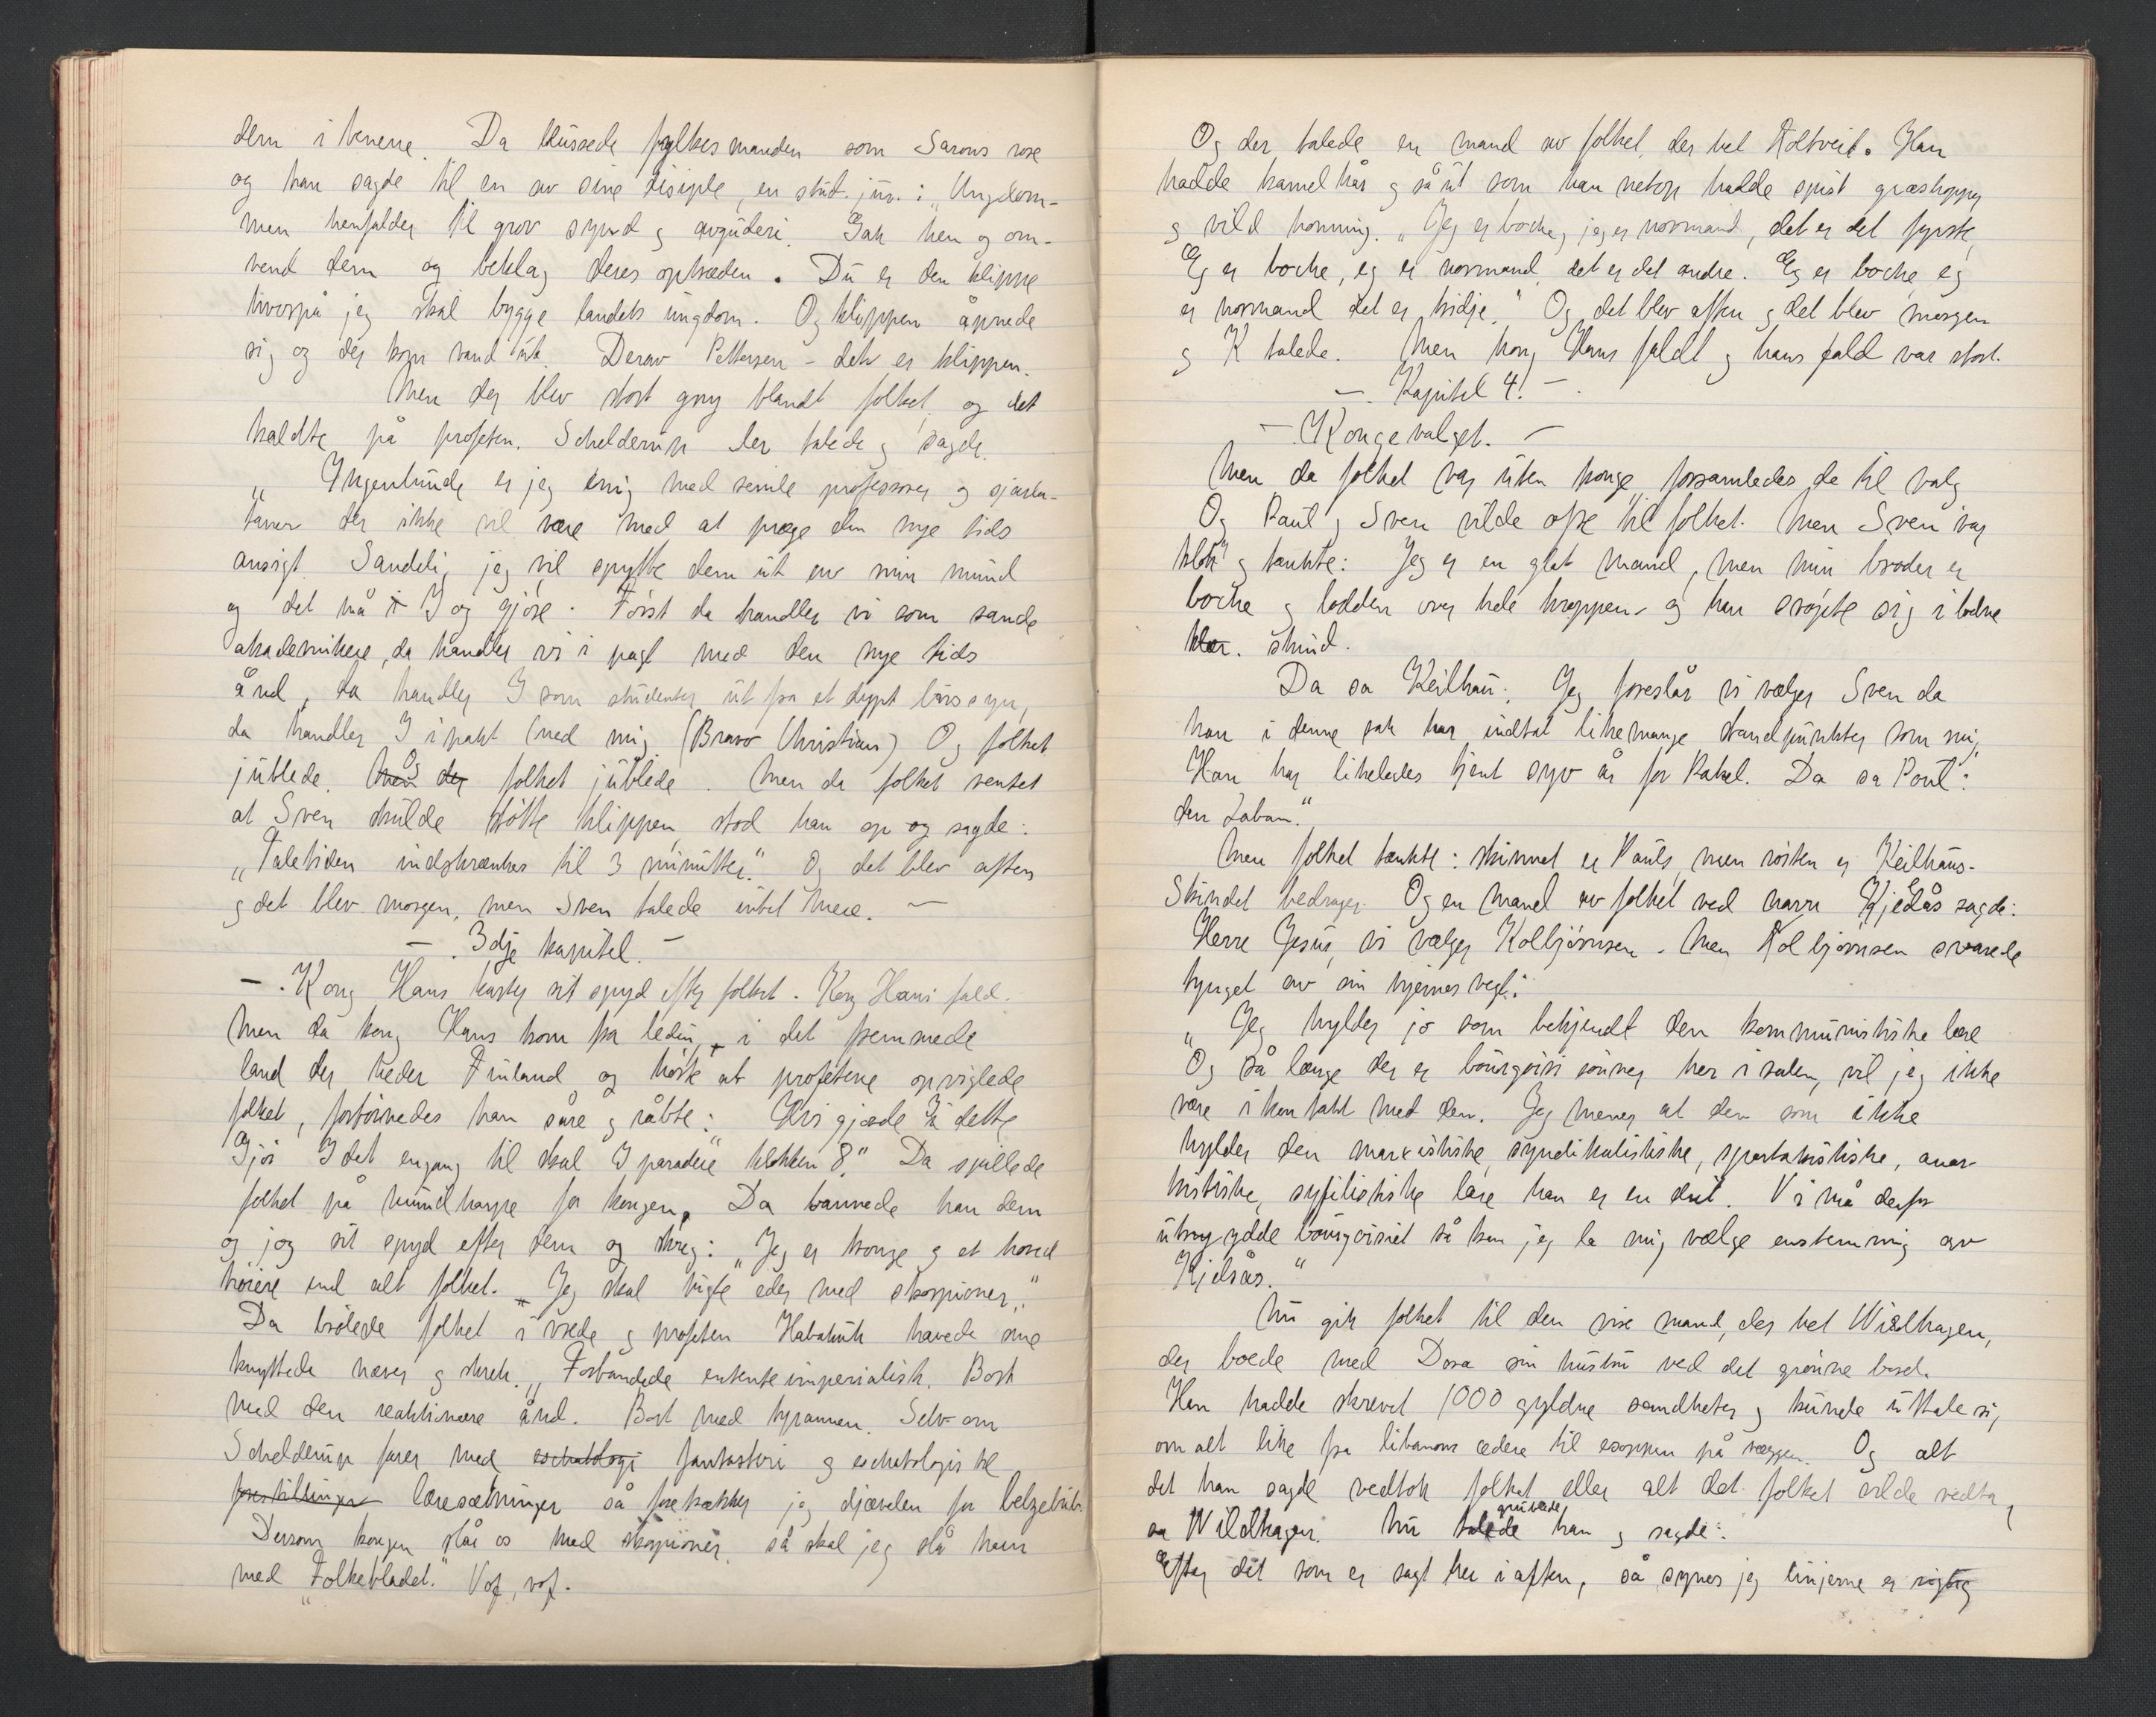 dem i tenene. Da blussede fylkesmanden som Sarons rose
og han sagde til en av sine disiple, en stud. jur. : „Ungdom-
men henfalder til grov synd og avguderi. Gak hen og om-
vend dem og beklag deres optræden. Du er den klippe
hvorpå jeg skal bygge landets ungdom. Og klippen åpnede
sig og der kom vand ut. Derav Pettersen - dek er klippen.
Men der blev stort gny blandt folket, og det
kaldte på profeten. Schelderup ler talede og sagde.
„Ingenlunde er jeg enig med senile professorer og sjarla-
taner der ikke vil være med at præge den nye tids
ansigt. Sandelig jeg vil spytte dem ut av min mund
og det må i I og gjøre. Først da handler vi som sande
akademikere, da handler vi i pagt med den nye tids
ånd, da handler I som studenter ut fra et dypt livssyn,
da handler I i pakt med mig. (Bravo Christian) Og folket
jublede. Men der Og folket jublede. Men da folket ventet
at Sven skulde støtte klippen stod han op og sagde:
„Taletiden indskrænkes til 3 minutter." Og det blev aften
og det blev morgen, men Sven talede intet mere. —
— . 3dje kapitel. —
— . Kong Hans kaster sit spyd efter folket. Kong Hans' fald.
Men da kong Hans kom fra leding i det fremmede
land der heder Finland og hørte at profetene opviglede
folket, fortørnedes han såre og råbte: Hvi gjorde I dette
Og gjør I det engang til skal I paradere klokken 8." Da spillede
folket på mundharpe for kongen. Da bannede han dem
og jog sit spyd efter dem og skreg: „Jeg er konge og et hoved
høiere end alt folket. Jeg skal tugte eder med skorpioner."
Da brølede folket i vrede og profeten Habakuk hævede sine
knyttede næver og skrek. „Forbandede ententeimperialist. Bort
med den reaktionære ånd. Bort med tyrannen. Selv om
Schelderup farer med eschatologi fantasteri og eschatologistil
forestillinger læresætninger så foretrækker jeg djævelen for belzebub.
Dersom kongen slår os med skorpioner, så skal jeg slå ham
med „Folkebladet." Vof, vof.
Og der talede en mand av folket, der het Holtveit. Han
hadde kamelhår og så ut som han netop hadde spist græshopper
og vild honning. „Jeg er boche, jeg er normand, det er det fyrste,
Eg er boche, eg er normand det er det andre. Eg er boche eg
er normand det er tridje." Og det blev aften og det blev morgen
og K talede. Men kong Hans faldt og hans fald var stort.
— . Kapitel 4. —
— . Kongevalget. —
Men da folket var uten konge, forsamledes de til valg
Og Paul og Sven vilde ofre til folket. Men Sven var
klok og tænkte: Jeg er en glat mand, men min broder er
boche og lodden over hele kroppen - og han svøpte sig i lodne
klær. skind.
Da sa Keilhau: Jeg foreslår vi vælger Sven da
han i denne sak har indtat likemange standpunkter som mig,
Han har likeledes tjent syv år for Rakel. Da sa Poul:
den Laban."
Men folket tænkte: skinnet er Pauls, men røsten er Keilhaus.
Skindet bedrager. Og en mand av folket ved navn Kjelsås sagde:
Herre Jesus, vi vælger Kolbjørnsen. Men Kolbjørnsen svarede
tynget av sin hjernes vegt:
„Jeg hylder jo som bekjendt den kommunistiske lære
Og så længe der er bourgoisi sønner her i salen, vil jeg ikke
være i kontakt med dem. Jeg mener at den som ikke
hylder den marxistiske, syndikalistiske, spartakistiske, anar-
kistiske, syfilistiske lære han er en drit. Vi må derfor
utrydde bourgoisiet så kan jeg la mig vælge enstemmig av
Kjelsås."
Nu gik folket til den vise mand, der het Wildhagen,
der boede med Dora sin hustru ved det grønne bord.
Han hadde skrevet 1000 gyldne sandheter og kunde uttale sig
om alt like fra libanons cedere til esoppen på væggen. Og alt
det han sagde vedtok folket eller alt det folket vilde vedta,
sa Wildhagen. Nu talede grublede han og sagde:
Efter det som er sagt her i aften, så synes jeg linjerne er rigtig